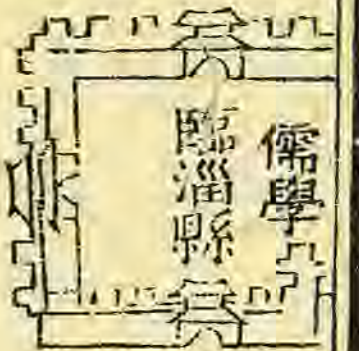 儒學
臨淄縣